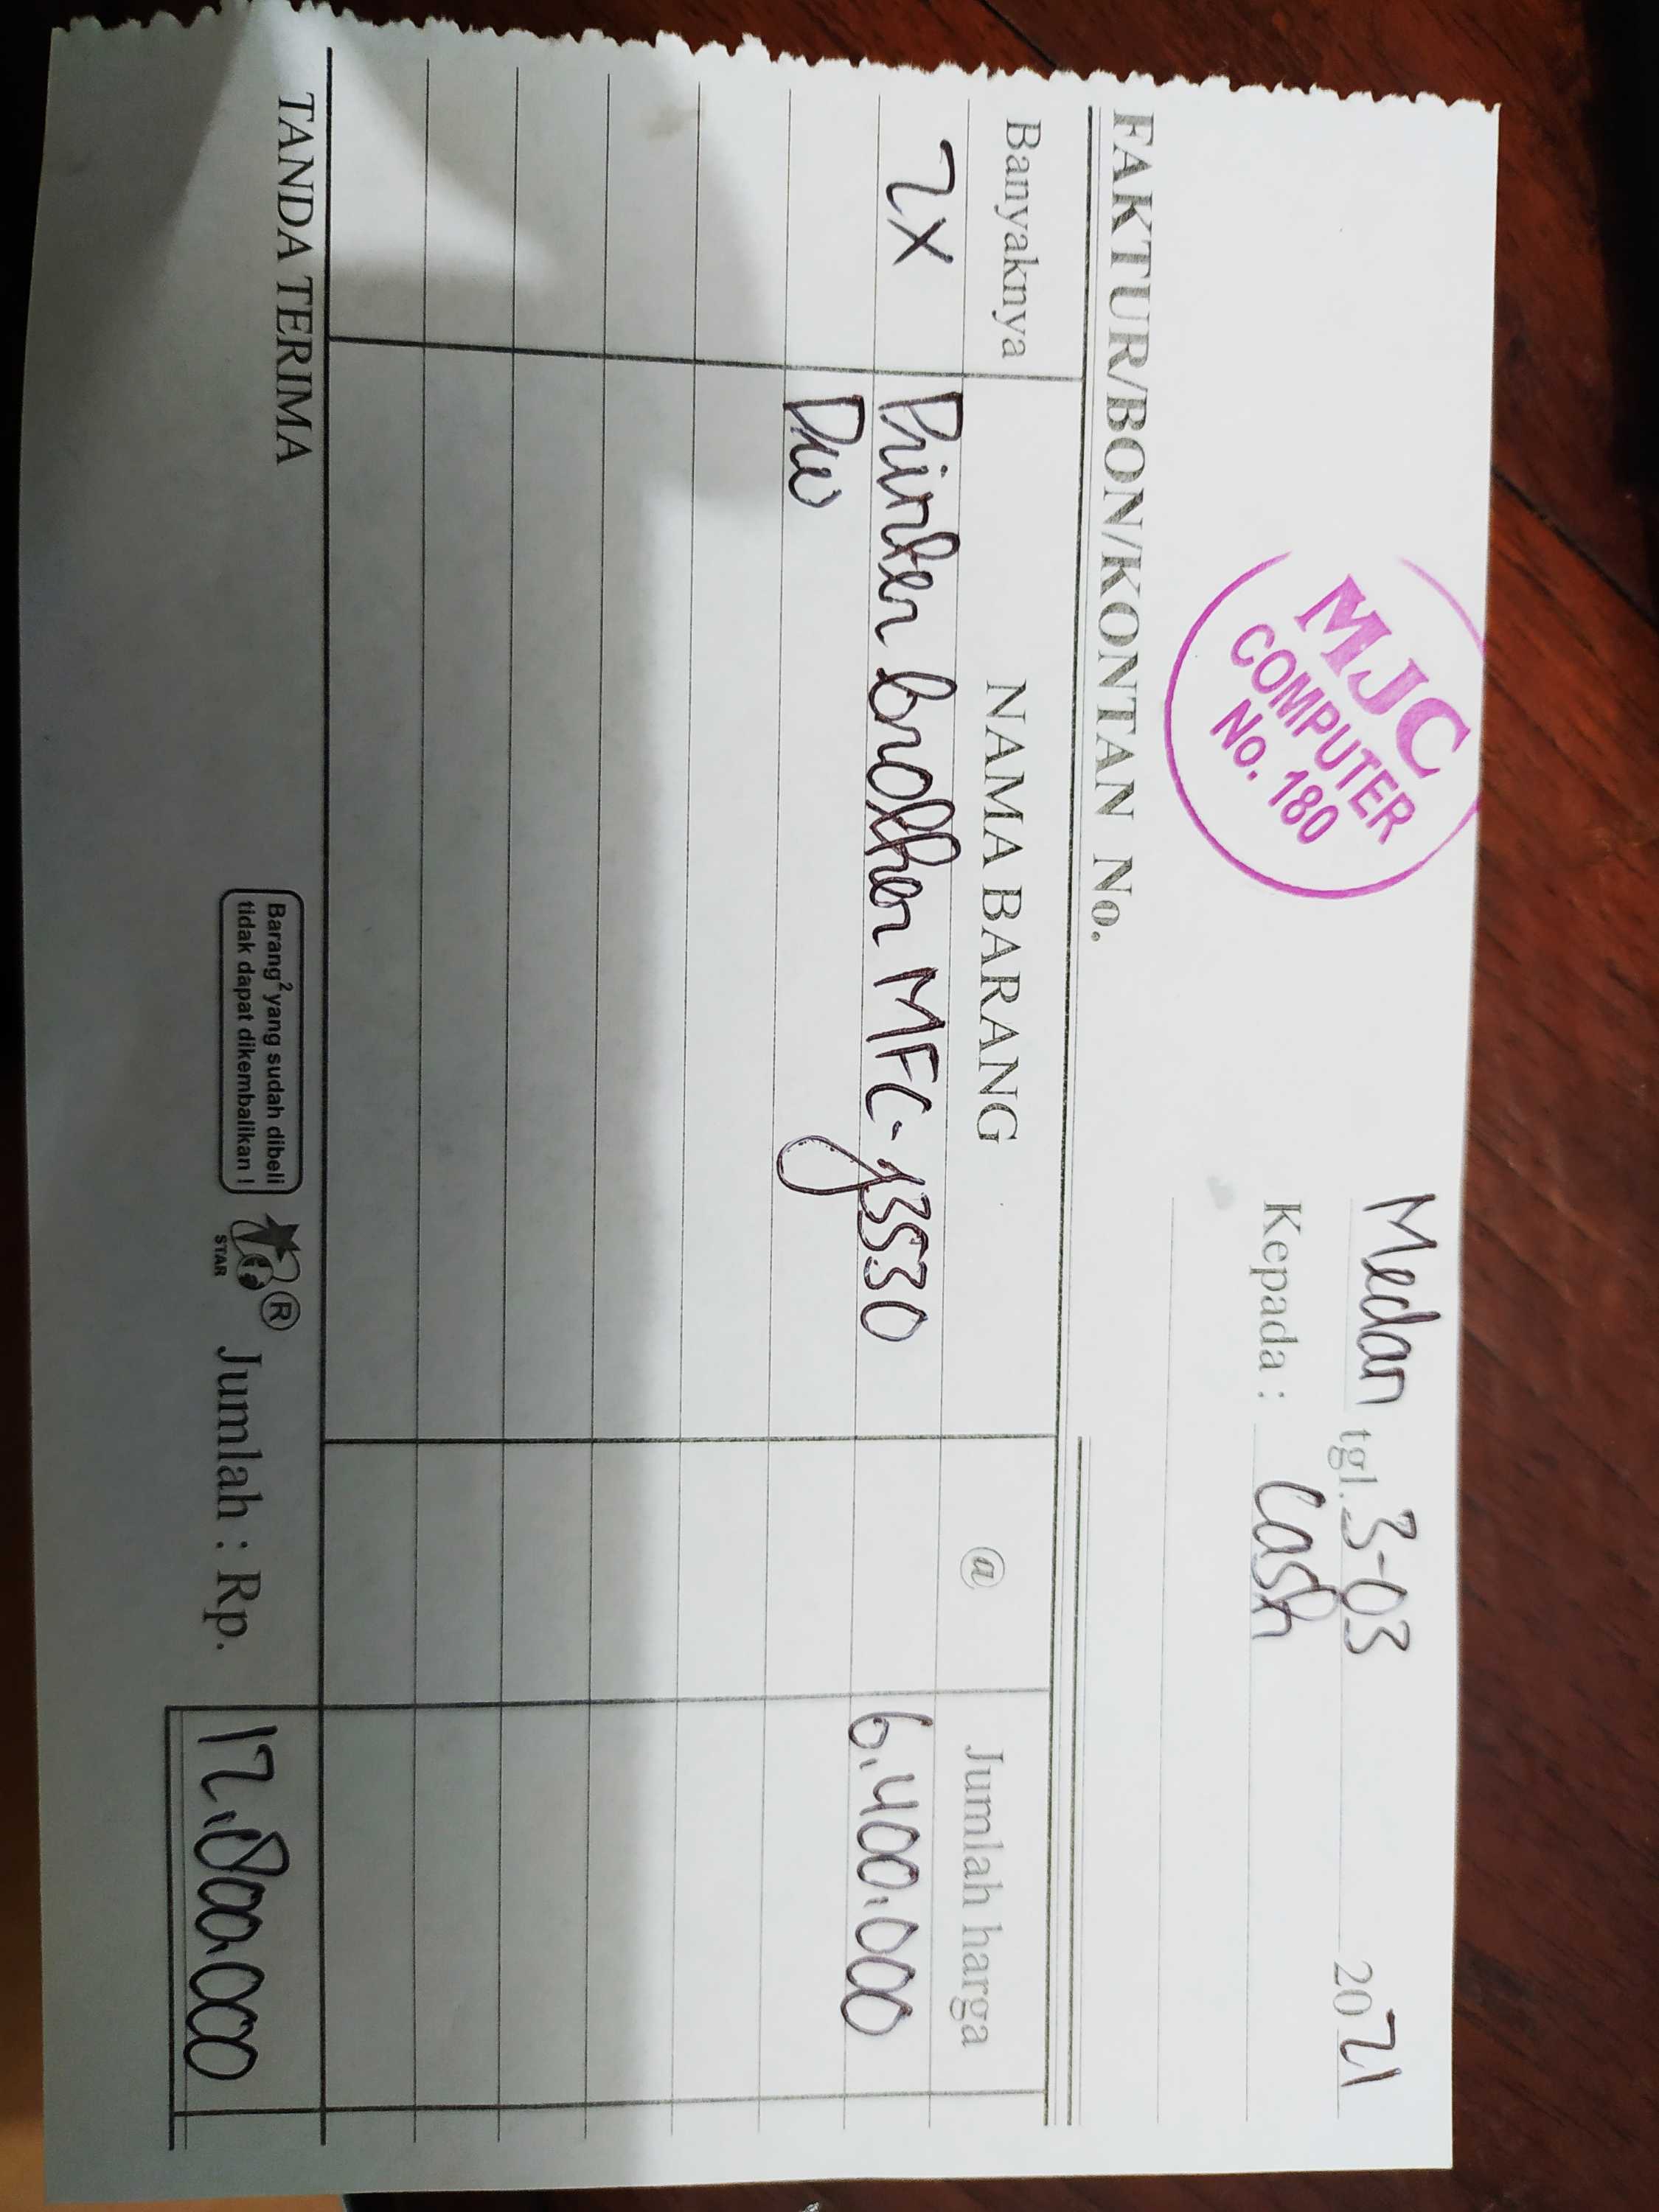 MJC
COMPUTER
No. 180
Medan tgl. 3-03 2021
Kepada : Cash
FAKTUR/BON/KONTAN No.
Banyaknya NAMA BARANG @ Jumlah harga
2x Printer brother MFC-J3530 6.400.000
DW
TANDA TERIMA
Barang² yang sudah dibeli
tidak dapat dikembalikan !
STAR ®
Jumlah : Rp. 12.800.000